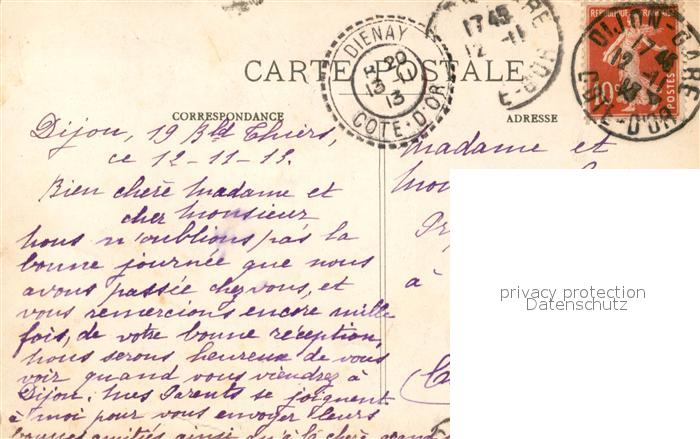 CARTE POSTALE
CORRESPONDANCE
ADRESSE
REPUBLIQUE FRANÇAISE
POSTES
10
DIENAY
20
13-11
13
COTE-D'OR
17 45
12-11
E-D'OR
DIJON-GARE
17 45
12-11
COTE-D'OR
Dijon, 19 Bld Thiers,
ce 12-11-13.
Bien chère Madame et
cher Monsieur
Nous n'oublions pas la
bonne journée que nous
avons passée chez vous, et
vous remercions encore mille
fois, de votre bonne réception,
Nous serons heureux de vous
voir quand vous viendrez à
Dijon; mes Parents se joignent
à moi pour vous envoyer leurs
bonnes amitiés ainsi qu'à la chère grand
Madame et
à
privacy protection
Datenschutz